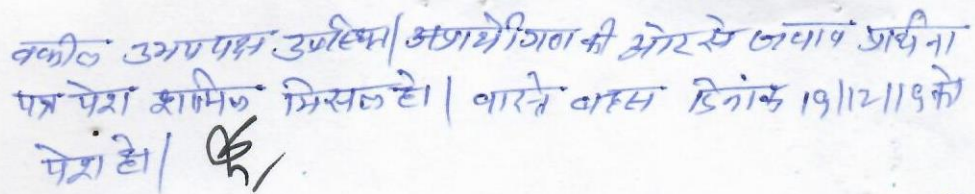 वकील उभयपक्ष उपस्थित। अप्रार्थीगण की ओर से जवाब प्रार्थना
पत्र पेश शामिल मिसल हो। वास्ते बहस दिनांक 19/12/19 को
पेश हो।